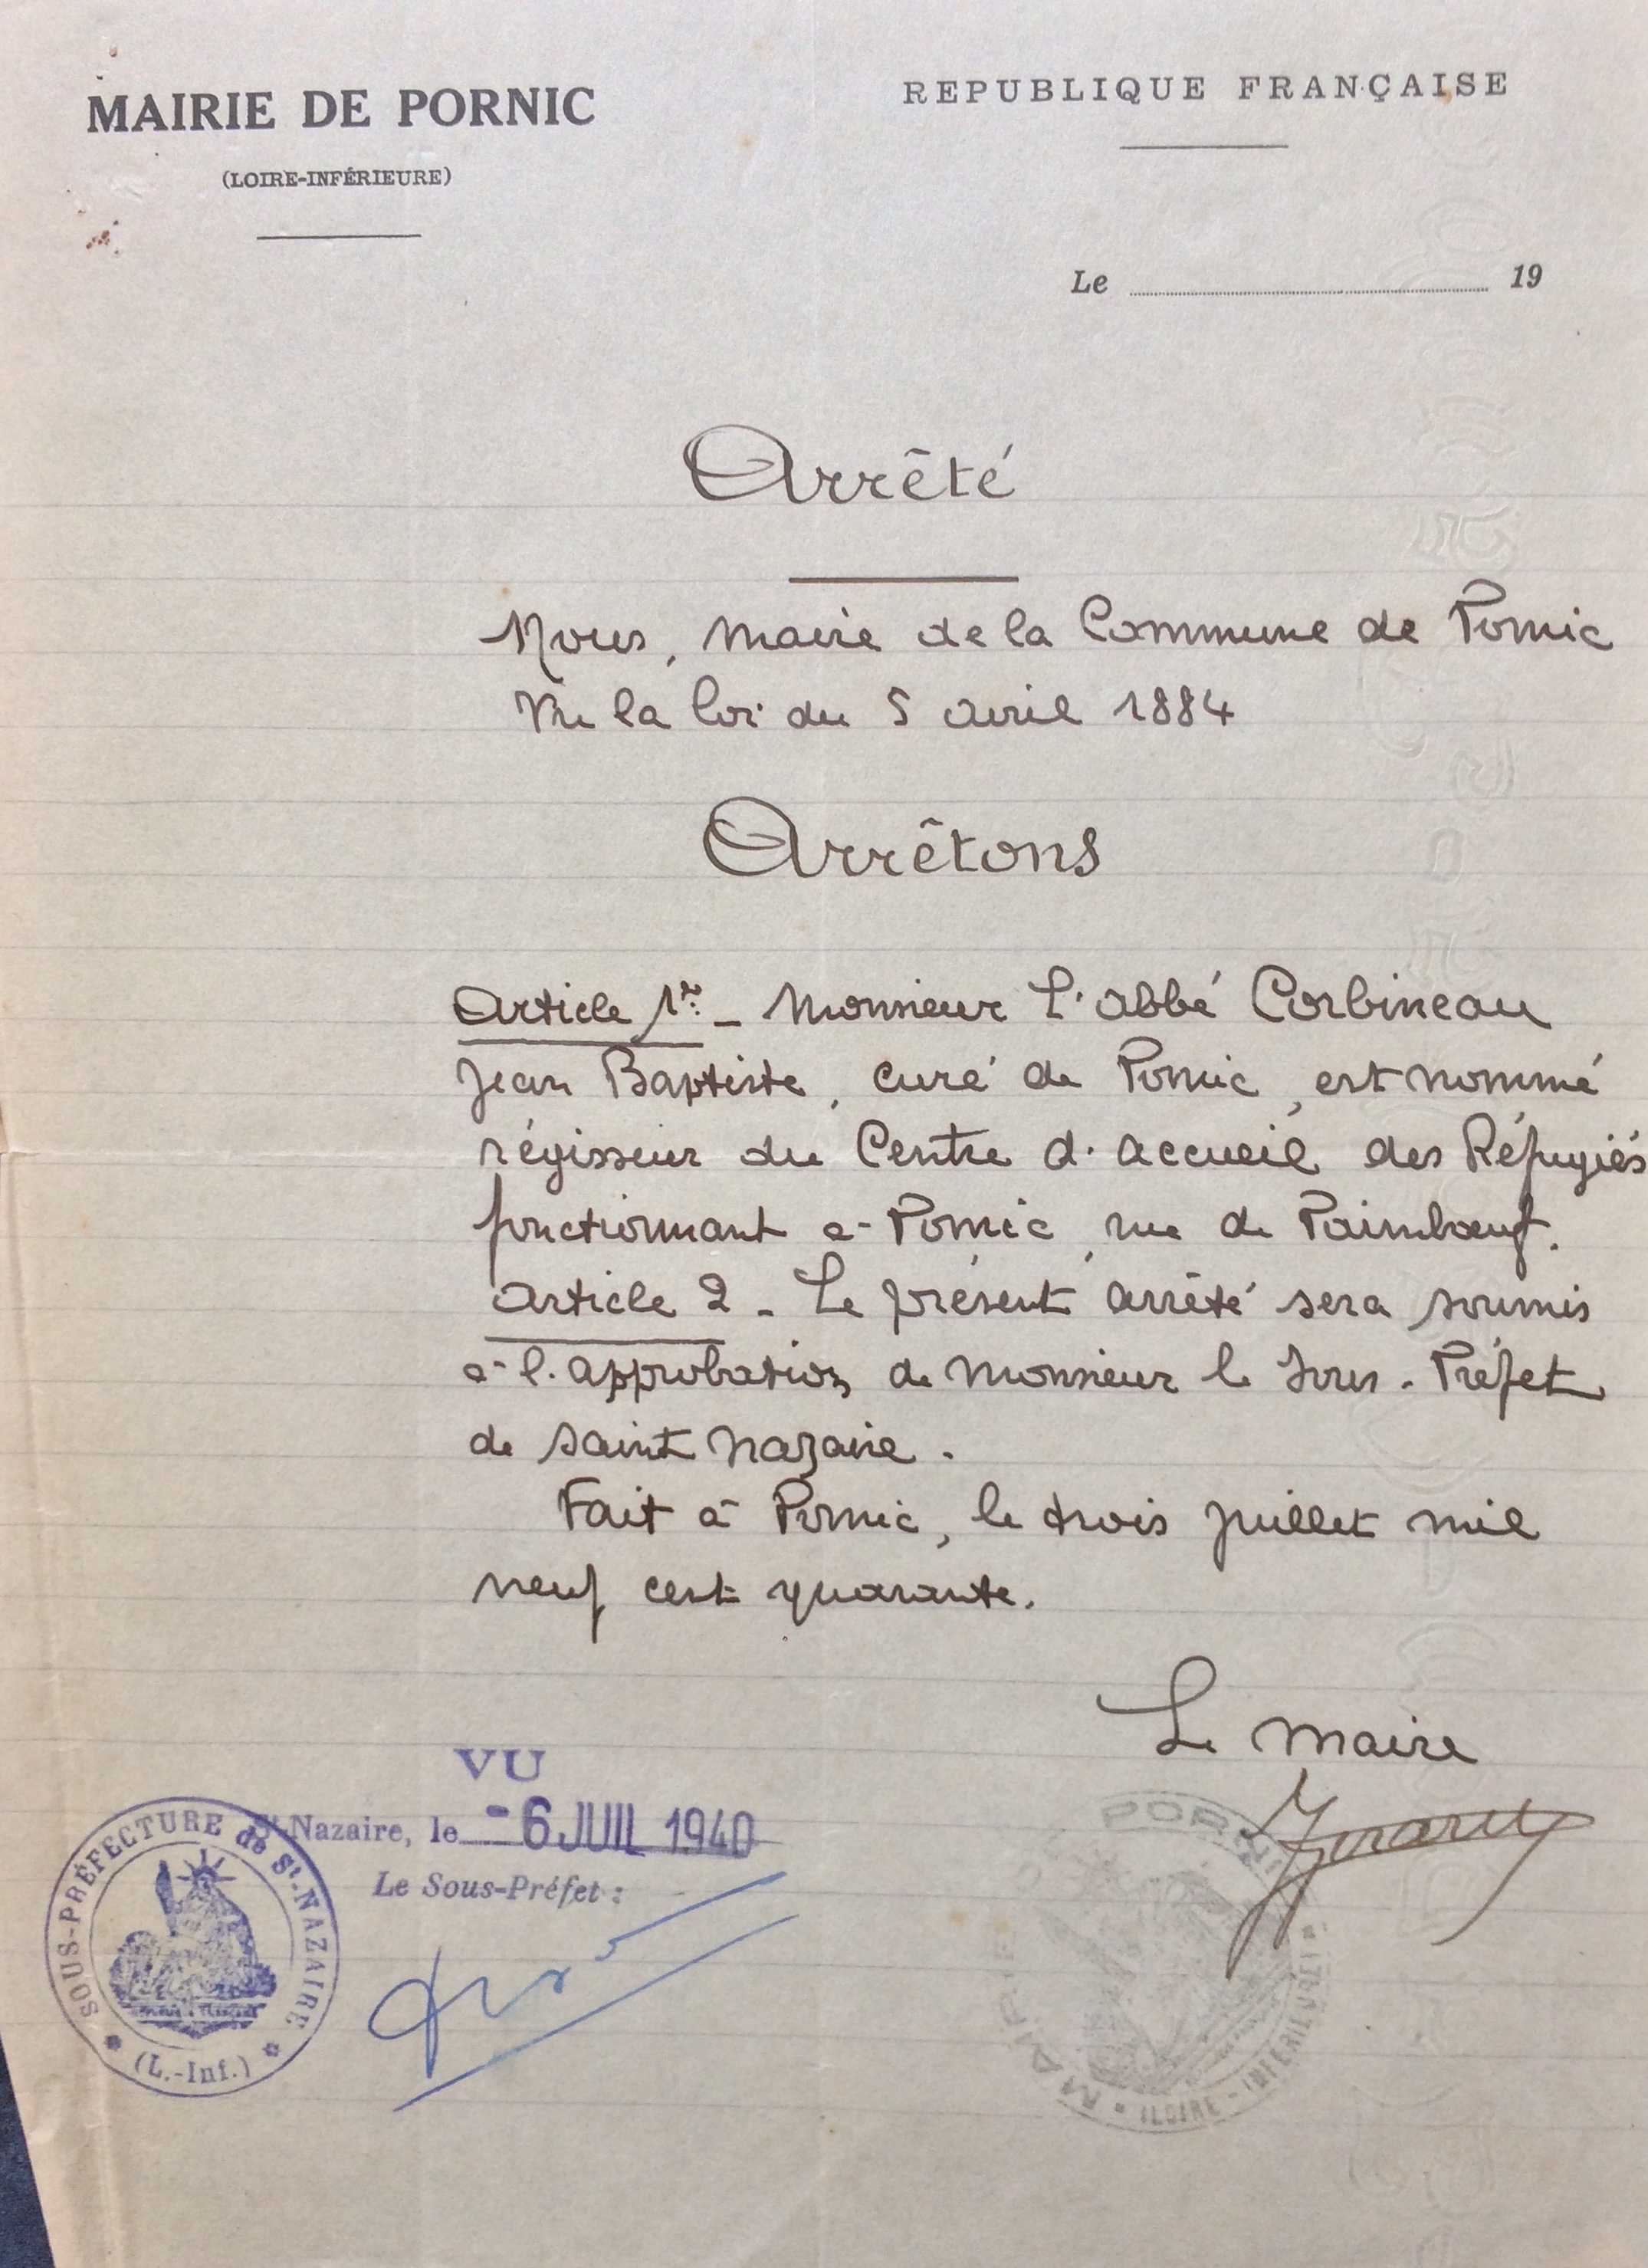 MAIRIE DE PORNIC
(LOIRE-INFÉRIEURE)
REPUBLIQUE FRANÇAISE
Le 19
Arrêté
Nous, Maire de la Commune de Pornic
Vu la loi du 5 avril 1884
Arrêtons
Article 1er - Monsieur L'abbé Corbineau
Jean Baptiste, curé de Pornic, est nommé
régisseur du Centre d'accueil des Réfugiés
fonctionnant à Pornic, rue de Paimboeuf.
Article 2 - Le présent arrêté sera soumis
à l'approbation de Monsieur le Sous-Préfet
de Saint Nazaire.
Fait à Pornic, le trois juillet mil
neuf cent quarante.
Le Maire
VU
St Nazaire, le -6 JUIL 1940
Le Sous-Préfet :
SOUS-PRÉFECTURE de St-NAZAIRE
(L.-Inf.)
MAIRIE DE PORNIC
(LOIRE-INFÉRIEURE)